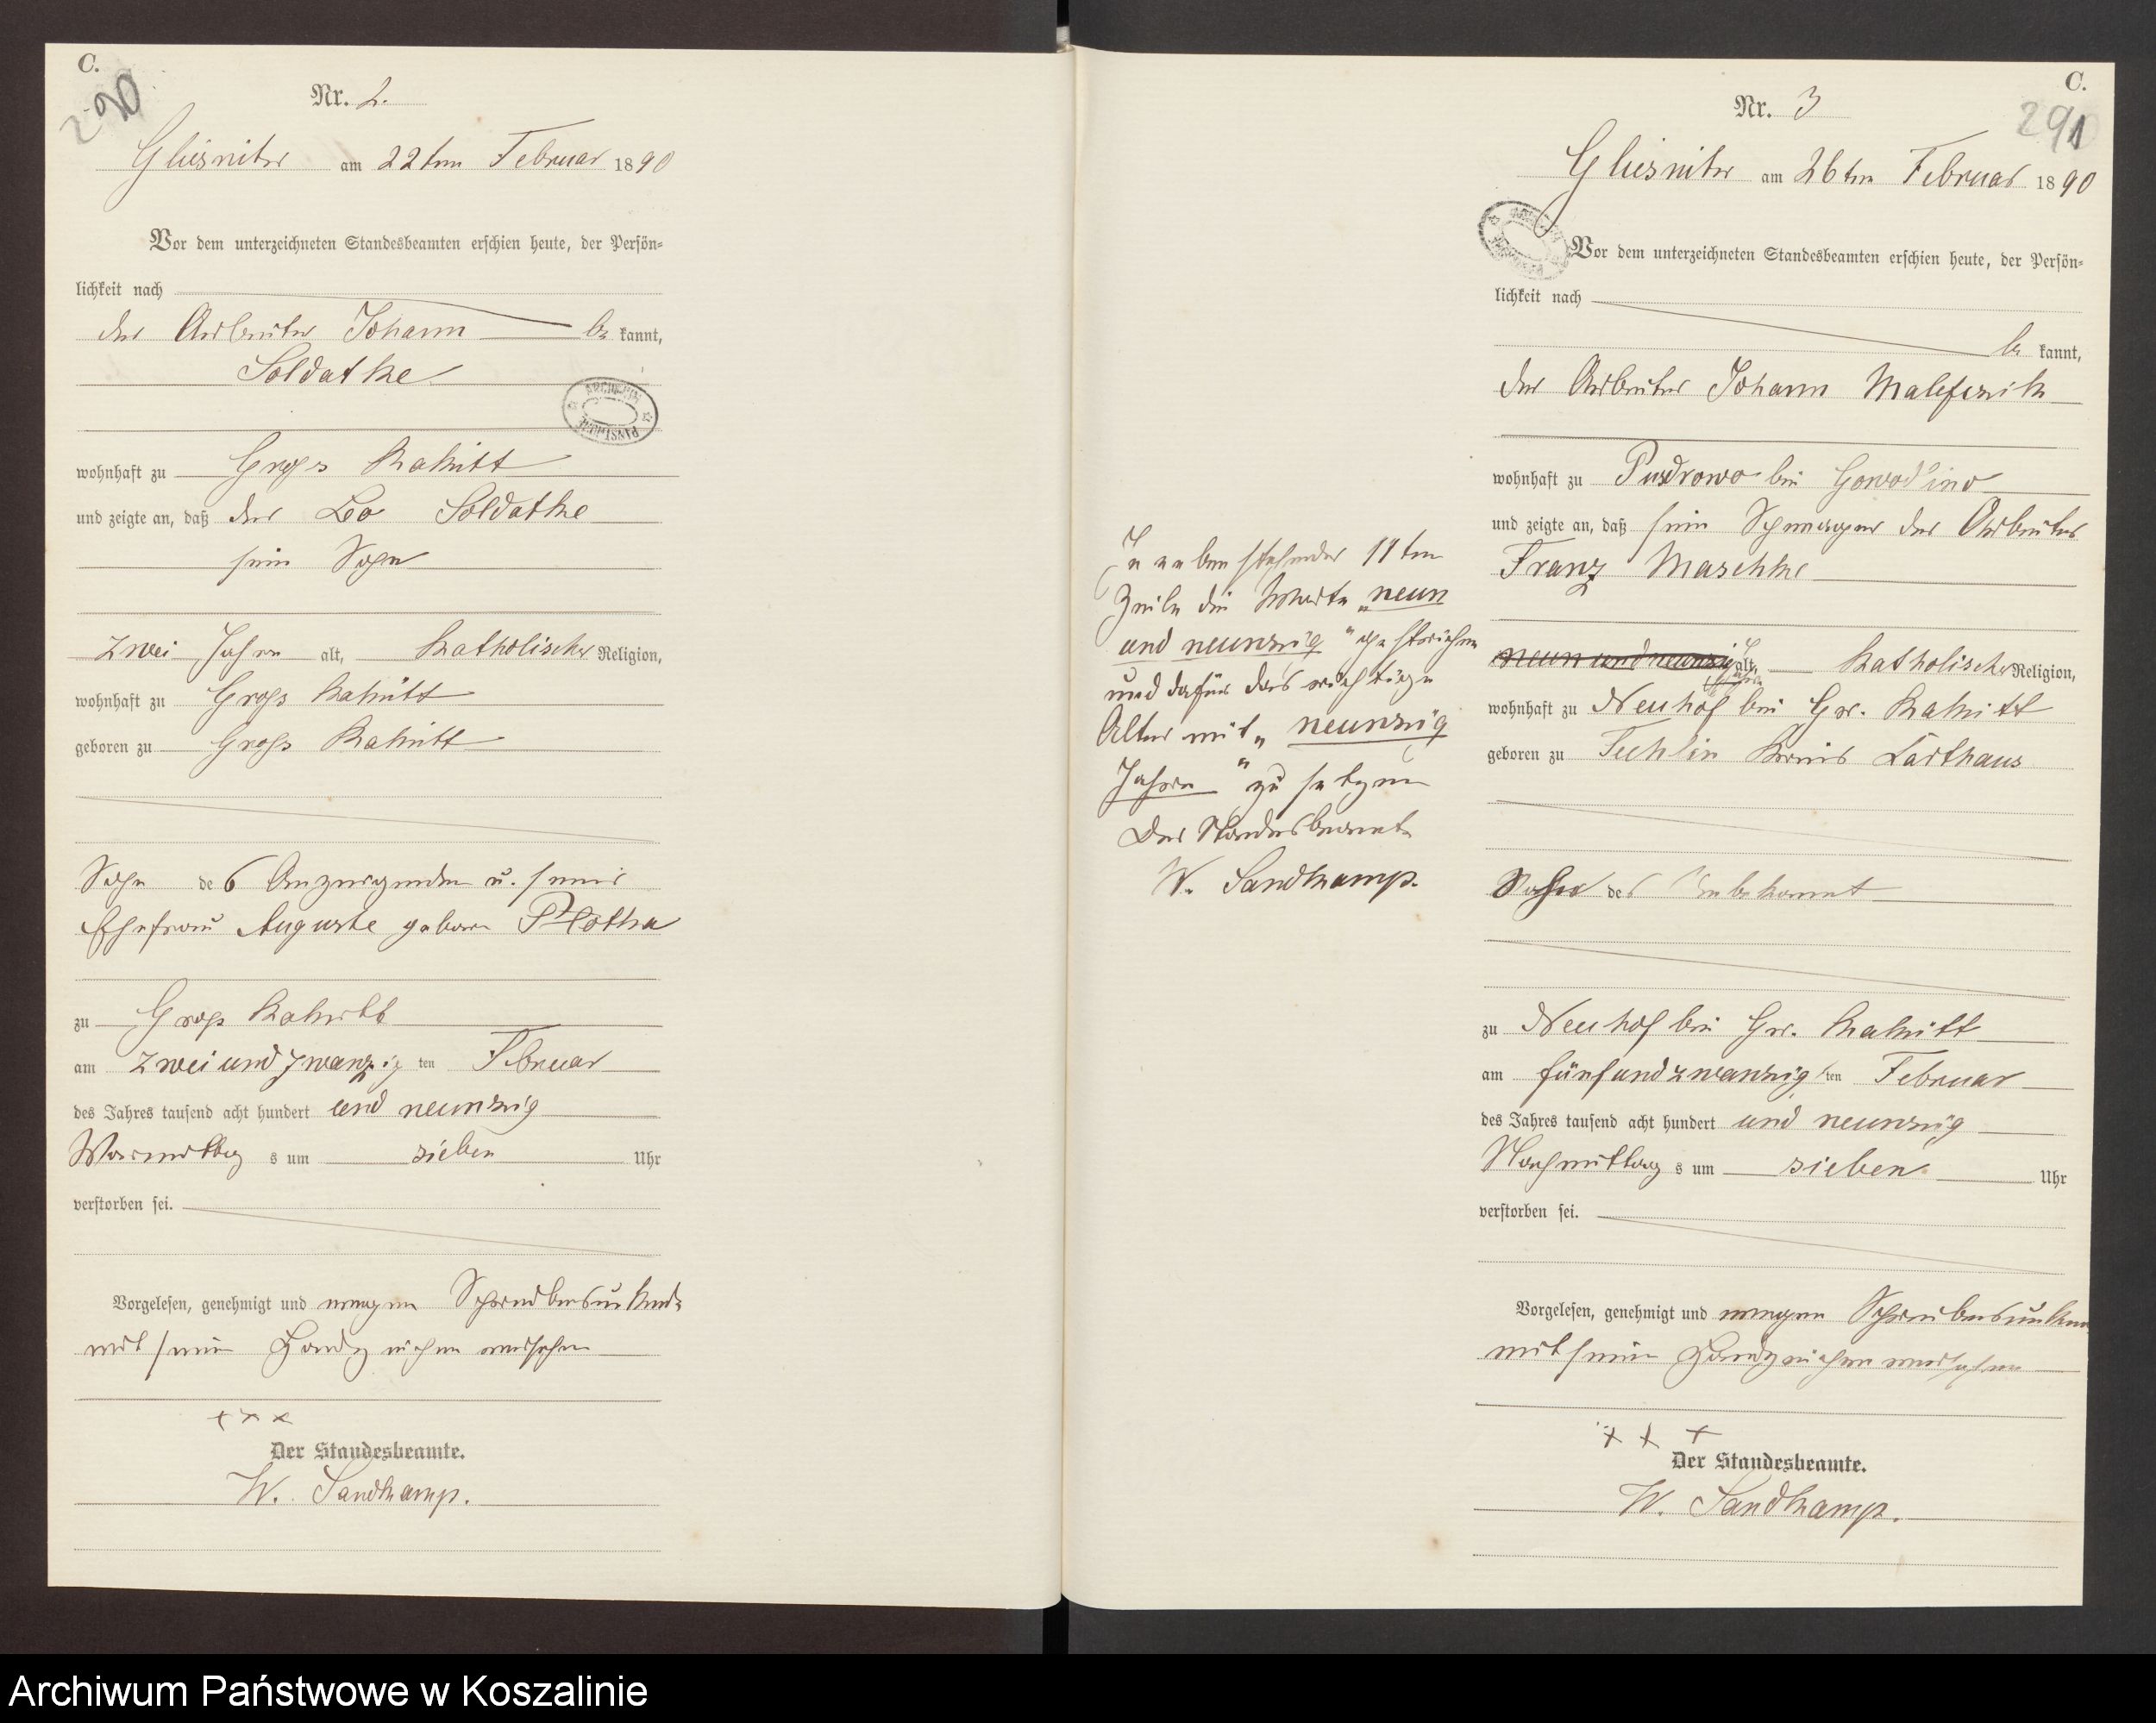 C.
290
Nr. 2.
Gliesnitz am 22ten Februar 1890
Vor dem unterzeichneten Standesbeamten erschien heute, der Persön-
lichkeit nach
der Arbeiter Johann be kannt,
Soldatke
wohnhaft zu Gross Rakitt
und zeigte an, daß der Leo Soldatke
sein Sohn
zwei Jahre alt, Katholischer Religion,
wohnhaft zu Gross Rakitt
geboren zu Gross Rakitt
Sohn des Anzeigenden u. seiner
Ehefrau Auguste geborn
zu Gross Rakitt
am zwei und zwanzig ten Februar
des Jahres tausend acht hundert und neunzig
Vormittag s um sieben Uhr
verstorben sei.
Vorgelesen, genehmigt und wegen Schreibensunkunde
mit seinem Handzeichen versehen
+ + +
Der Standesbeamte.
W. Sandkamp.
C.
291
Nr. 3
Gliesnitz am 26ten Februar 1890
Vor dem unterzeichneten Standesbeamten erschien heute, der Persön-
lichkeit nach
be kannt,
der Arbeiter Johann
wohnhaft zu bei
und zeigte an, daß sein Schwager der Arbeiter
Franz Maschke
neun und neunzig Jahre alt, Katholischer Religion,
wohnhaft zu Neuhof bei Gr. Rakitt
geboren zu Kreis Carthaus
Sohn des Unbekannt
zu Neuhof bei Gr. Rakitt
am fünf und zwanzig ten Februar
des Jahres tausend acht hundert und neunzig
Nachmittag s um sieben Uhr
verstorben sei.
Vorgelesen, genehmigt und wegen Schreibensunkunde
mit seinem Handzeichen versehen
+ + +
Der Standesbeamte.
W. Sandkamp.
In nebenstehender 11ten
Zeile die Worte „neun
und neunzig" gestrichen
und dafür das richtige
Alter mit „neunzig
Jahre" zu setzen
Der Standesbeamte
W. Sandkamp.
Archiwum Państwowe w Koszalinie